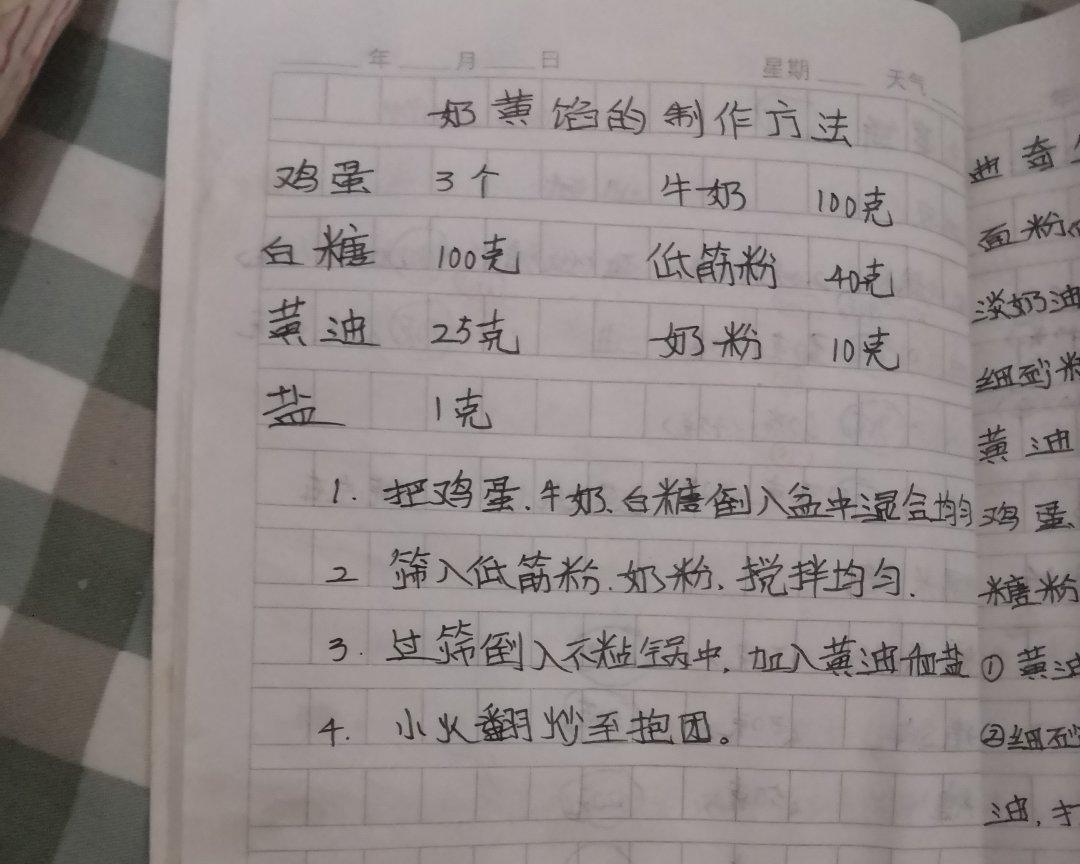 年 月 日 星期 天气
奶黄馅的制作方法
鸡蛋 3个 牛奶 100克
白糖 100克 低筋粉 40克
黄油 25克 奶粉 10克
盐 1克
1. 把鸡蛋、牛奶、白糖倒入盆中混合均匀
2 筛入低筋粉、奶粉、搅拌均匀.
3. 过筛倒入不粘锅中,加入黄油和盐
4. 小火翻炒至抱团。
曲奇
面粉
淡奶油
细砂
黄油
鸡蛋
糖粉
① 黄油
②细砂
油,